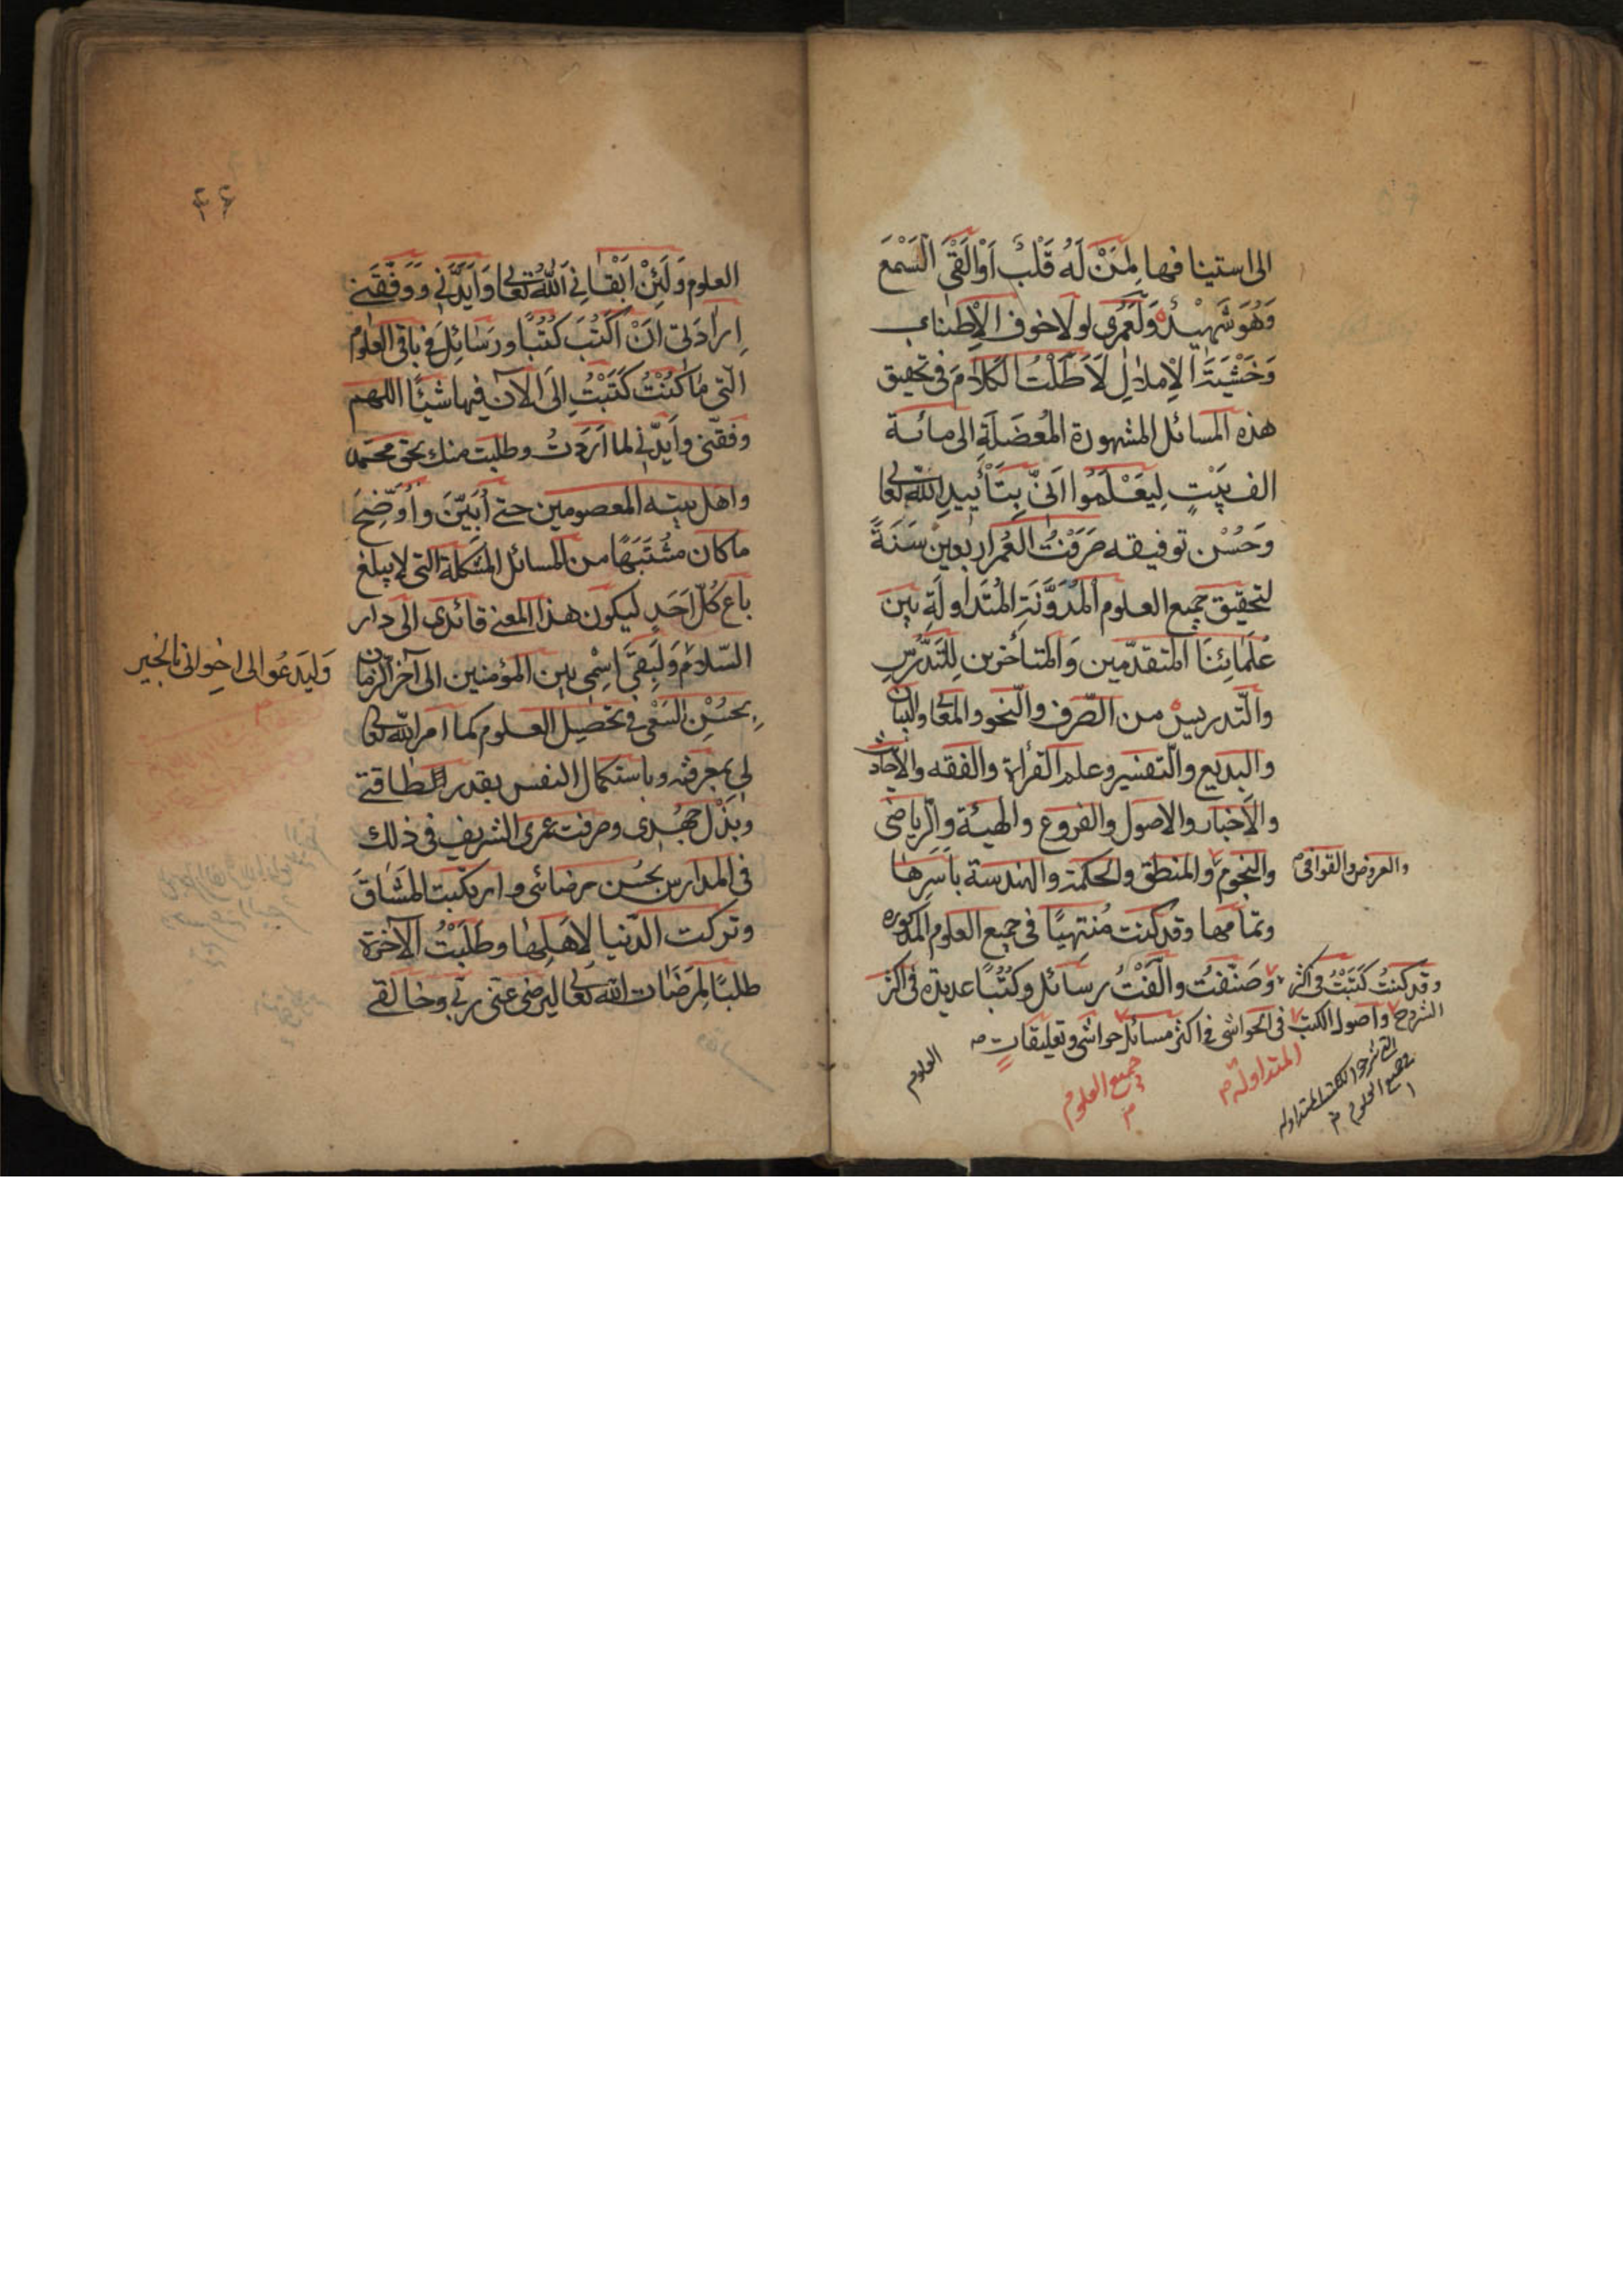 الى استينافها لِمَنْ لَهُ قَلْبٌ اَوْ اَلْقَى السَّمْعَ
وَهُوَ شَهِيْدٌ وَلَعَمْرى لولا خوف الْاِطناب
وَخَشْيَةَ الْاِملالِ لَاَطَلْتُ الْكَلامَ فى تحقيق
هذه المسائل المشهورة المُعْضَلَةِ الى مائة
الف بَيْتٍ لِيَعْلَمُوا اَنّى بِتَأْييدِ اللّٰه تعالى
وَحُسْن توفيقه صَرَفْتُ الْعُمْرَ اربعين سَنَةً
لتحقيق جميع العلوم الْمُدَوَّنَةِ الْمُتَدَاوِلَةِ بين
عُلَمَائِنَا المتقدّمين وَالمتأخرين لِلتَّدَرُّسِ
والتّدريس من الصّرف والنّحو والمعانى والبيان
والبديع والتفسير وعلم القرأة والفقه والاحاديث
والأخبار والاصول والفروع والهيئة والرّياضى
والنجوم والمنطق والحكمة والهندسة باَسرِها
والعروض والقوافى م
وتمامها وقد كنت مُنتهيًا فى جميع العلوم المذكوره
وَصَنّفتُ والّفْتُ رسائل وكُتُبًا عديدة فى اكثر
وقد كنتُ كَتَبْتُ فى اكثر
الشروح واصول الكتب فى الحواشى فى اكثر مسائل حواشى وتعليقات صه
المتداولة م
جميع العلوم
م
العلوم
٤٦
العلوم وَلَئِنْ اَبْقَانِى اللّٰهُ تعالى وَاَيَّدَنى وَوَفَّقَنى
اِرادَتى اَنْ اَكْتُبَ كُتُبًا ورَسَائِلَ فى باقى العلوم
الّتى مَا كُنْتُ كَتَبْتُ اِلَى الآن فيها شيئًا اللهم
وفقنى وايدنى لما اَرَدتُ وطلبت منك بحق محمّد
واهل بيته المعصومين حتى اُبَيّنَ واُوَضِّحَ
ما كان مشْتَبَهًا من المسائل المشكلة التى لا يبلغ
باع كلّ اَحَدٍ ليكون هذا المعنى قائدى الى دار
السّلام وَلِيَبْقَى اِسْمِى بين المؤمنين الى آخر الزمان
وَلِيَدعُو الى اخوانى بالخير
بِحُسْنِ السَّعْى فى تحصيل العلوم كما امر اللّه تعالى
لى بمعرفته وباستكمال النفس بقدر الطاقة
وبَذْل جُهْدى وصرفت عمرى الشريف فى ذلك
فى المدارس بحُسن رضائى وارتكبت المَشَاقَ
وتركت الدّنيا لاهلها وطَلَبْتُ الآخرة
طلبًا لِمَرضَات اللّٰه تعالى ليرضى عنّى ربّى وخالقى